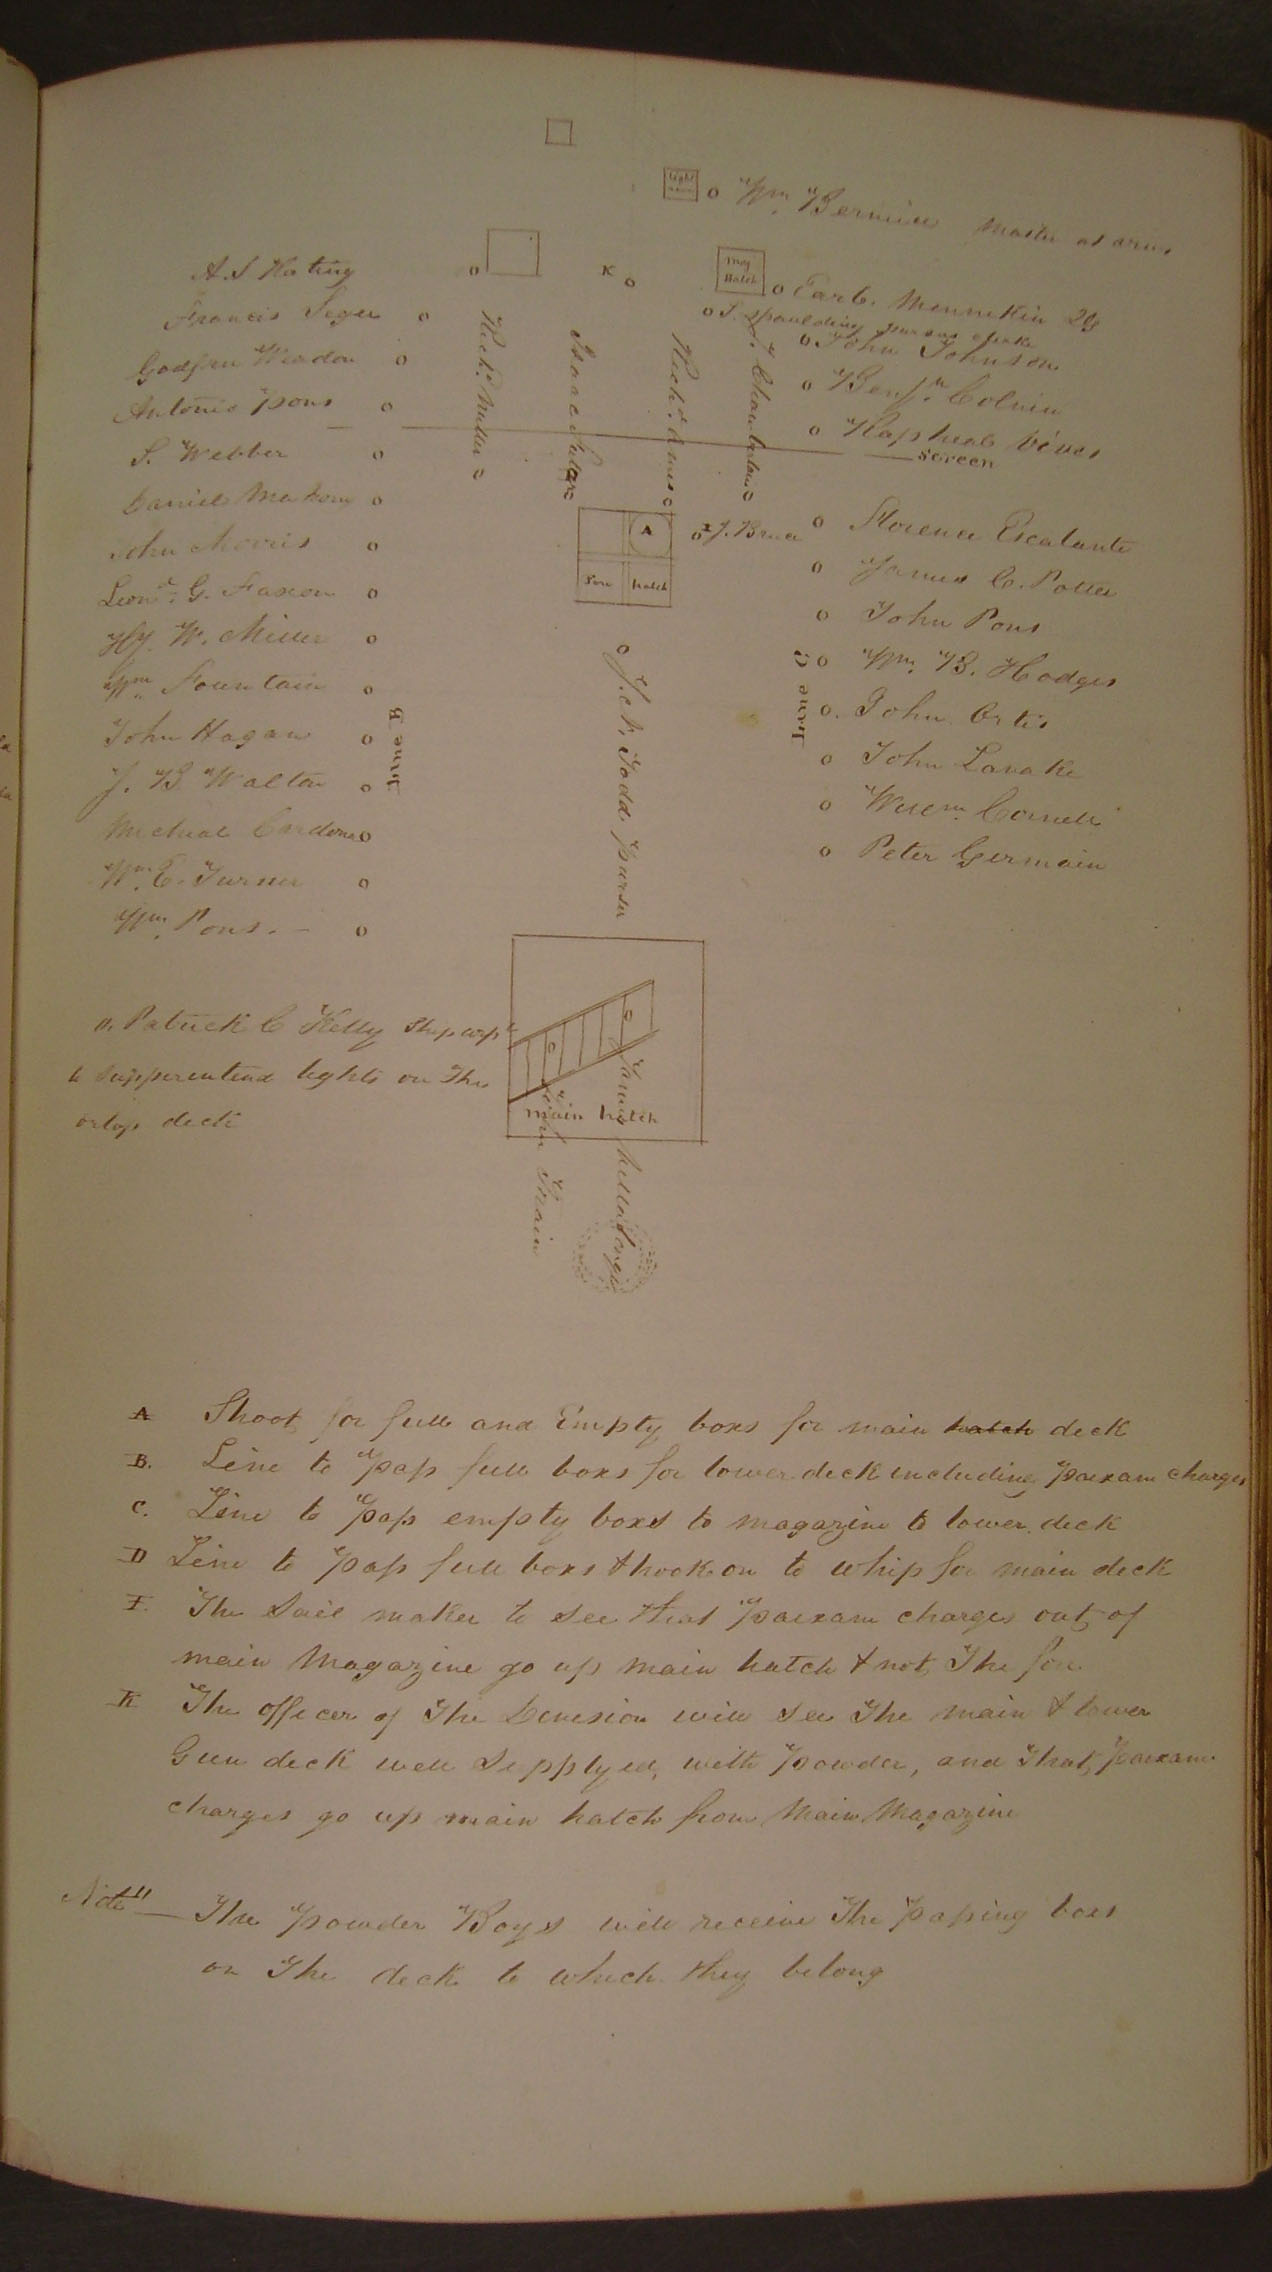 light
Wm. Master at arms
A. S.
Francis Seger
Godfrew Weadon
Antonio Pons
S. Webber
Daniel Mahony
John Morris
Leond. G. Faxon
Hy. W. Miller
Wm Fountain
John Hagan
J. B Walton
Micheal Cardona
Wm. E. Turner
Wm. Pons. -
Line B
Richd. Miller
Isaac
Richd.
J. Chamberlain
K
Mag
Hatch
Earl. Mennekin 2g
S. Spaulding pursers clerk
John Johnson
Benjn. Colvin
Rapheal Vives
Screen
A
Fore hatch
I J. Bruce
Florence Escalante
James C. Potter
John Pons
Wm. B. Hodges
John Ortis
John Lavake
Willm. Cornell
Peter Germain
Line C
J. Ch. Todd purser
". Patrick C Kelly Ship corpl
to supperentend lights on The
orlop deck
main hatch
John Swain
James
A Shoot for full and Empty boxs for main hatch deck
B. Line to pass full boxs for lower deck including paixam charges
C. Line to pass empty boxs to magazine to lower deck
D Line to pass full boxs & hook on to whip for main deck
I. The Sail maker to see that paixam charges out of
main Magazine go up main hatch & not The fore
K The officer of The Devision will see The main & lower
Gun deck well Sepplyed, with powder, and That paixam
charges go up main hatch from Main Magazine
Note" The powder Boys will receive The passing boxs
on The deck to which they belong